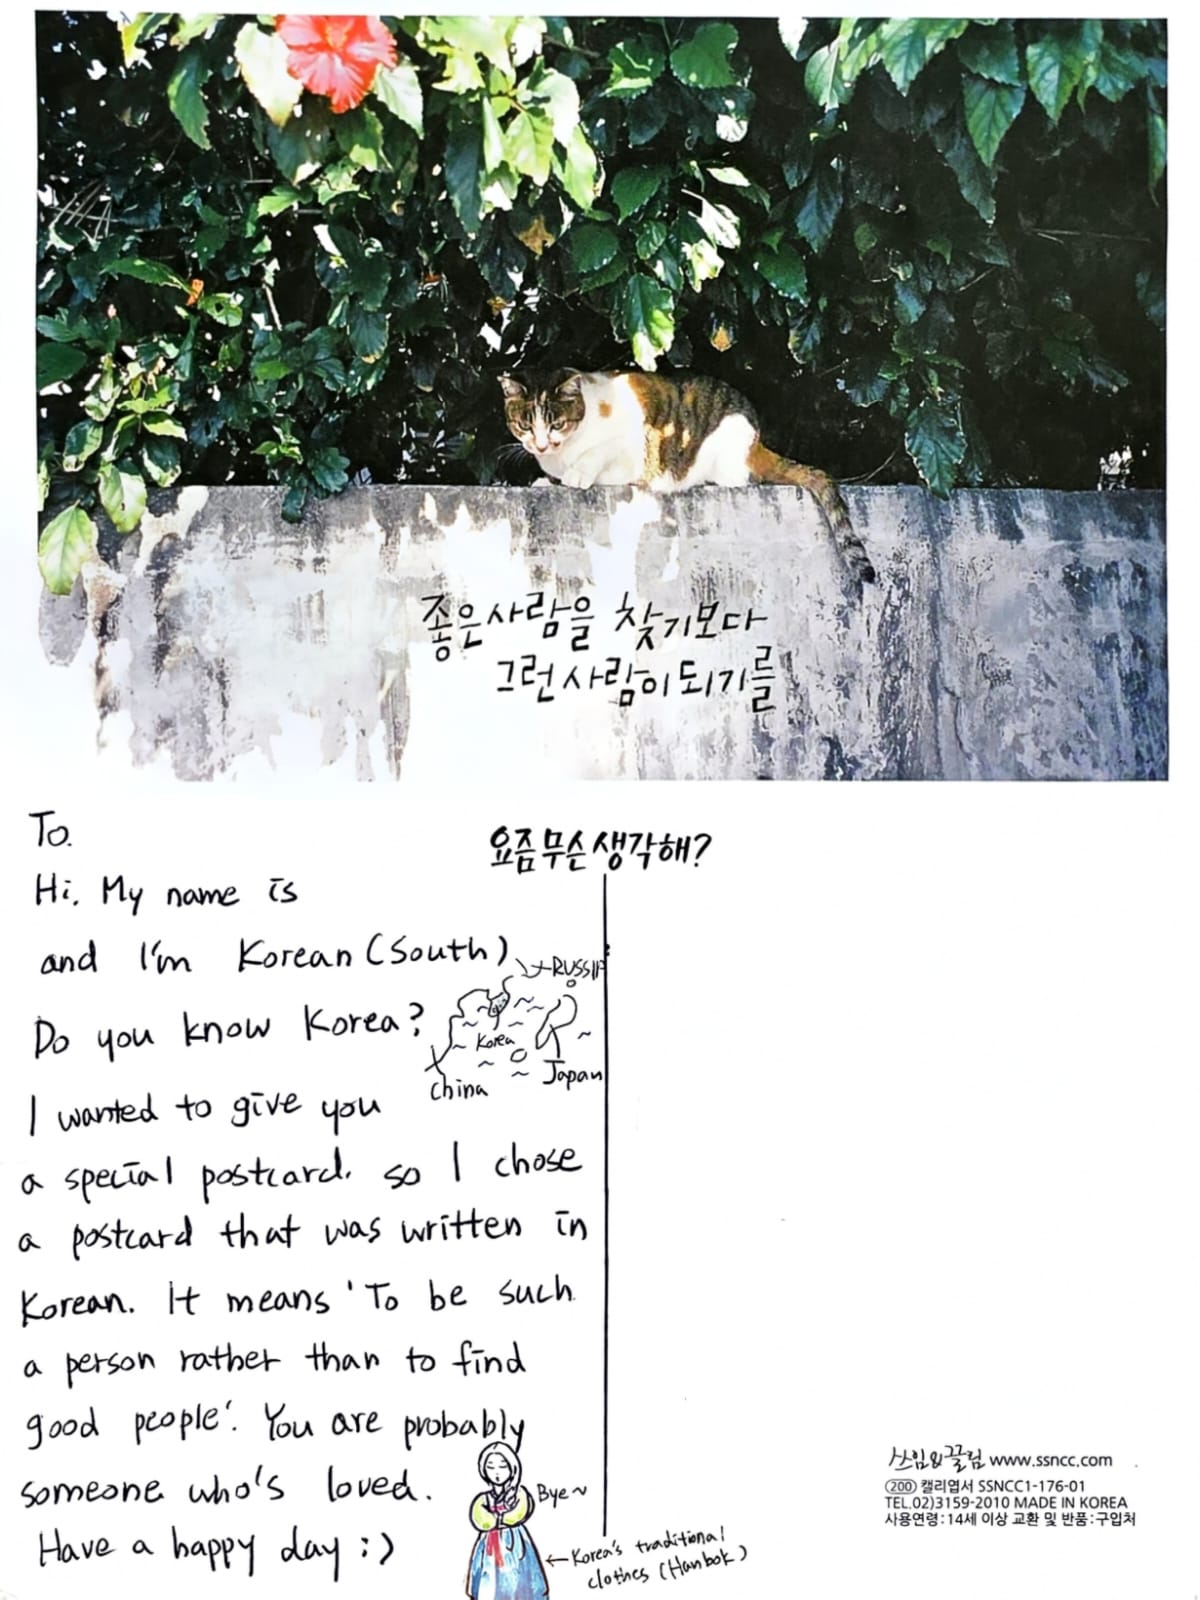 좋은 사람을 찾기보다
그런 사람이 되기를
To.
요즘 무슨 생각해?
Hi. My name is
and I'm Korean (South)
RUSSIA
Do you know Korea?
Korea
Japan
China
I wanted to give you
a special postcard. so I chose
a postcard that was written in
Korean. It means 'To be such
a person rather than to find
good people'. You are probably
someone who's loved.
Bye~
Have a happy day :)
← Korea's traditional
clothes (Hanbok)
쓰임&끌림 www.ssncc.com
200 캘리엽서 SSNCC1-176-01
TEL.02)3159-2010 MADE IN KOREA
사용연령:14세 이상 교환 및 반품:구입처